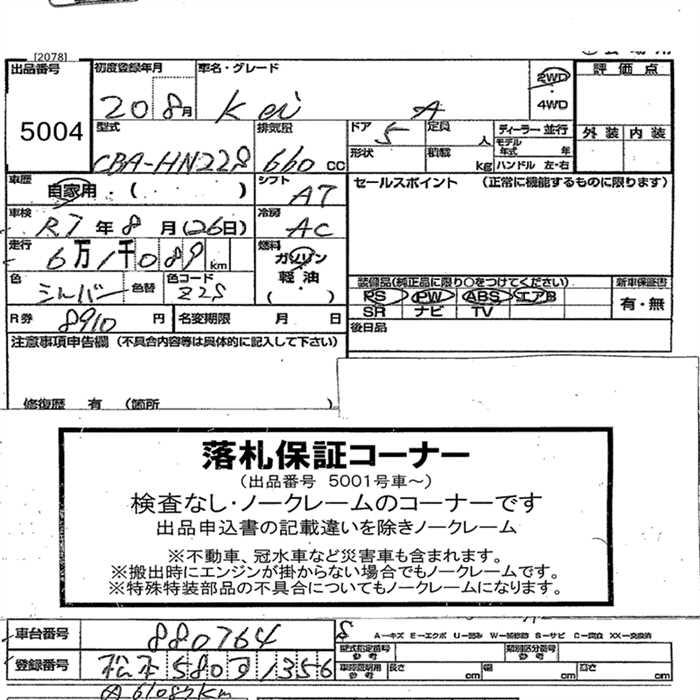 [2078]
出品番号
5004
初度登録年月
20 8月
車名・グレード
Kei A
2WD
・
4WD
評価点
外装 内装
型式
CBA-HN22S
排気量
660 CC
ドア 5
定員 人
形状
積載 kg
ディーラー 並行
モデル年式 年
ハンドル 左・右
車歴
自家用・( )
シフト
AT
セールスポイント (正常に機能するものに限ります)
車検
R7年8月(26日)
冷房
AC
走行
6万1千089km
燃料
ガソリン
軽油
( )
色
シルバー
色替
色コード
Z2S
装備品(純正品に限り○をつけてください)
PS PW ABS エアB
SR ナビ TV
新車保証書
有・無
R券 8910円
名変期限 月 日
後日品
注意事項申告欄 (不具合内容等は具体的に記入して下さい)
修復歴 有 (箇所 )
落札保証コーナー
(出品番号 5001号車～)
検査なし・ノークレームのコーナーです
出品申込書の記載違いを除きノークレーム
※不動車、冠水車など災害車も含まれます。
※搬出時にエンジンが掛からない場合でもノークレームです。
※特殊特装部品の不具合についてもノークレームになります。
車台番号 880764
A－キズ E－エクボ U－凹み W－補修跡 S－サビ C－腐食 XX－交換済
型式指定番号 参考
類別区分番号 参考
登録番号 松本580す1356
車検証明用 参考
長さ cm 幅 cm 高さ cm
61089km